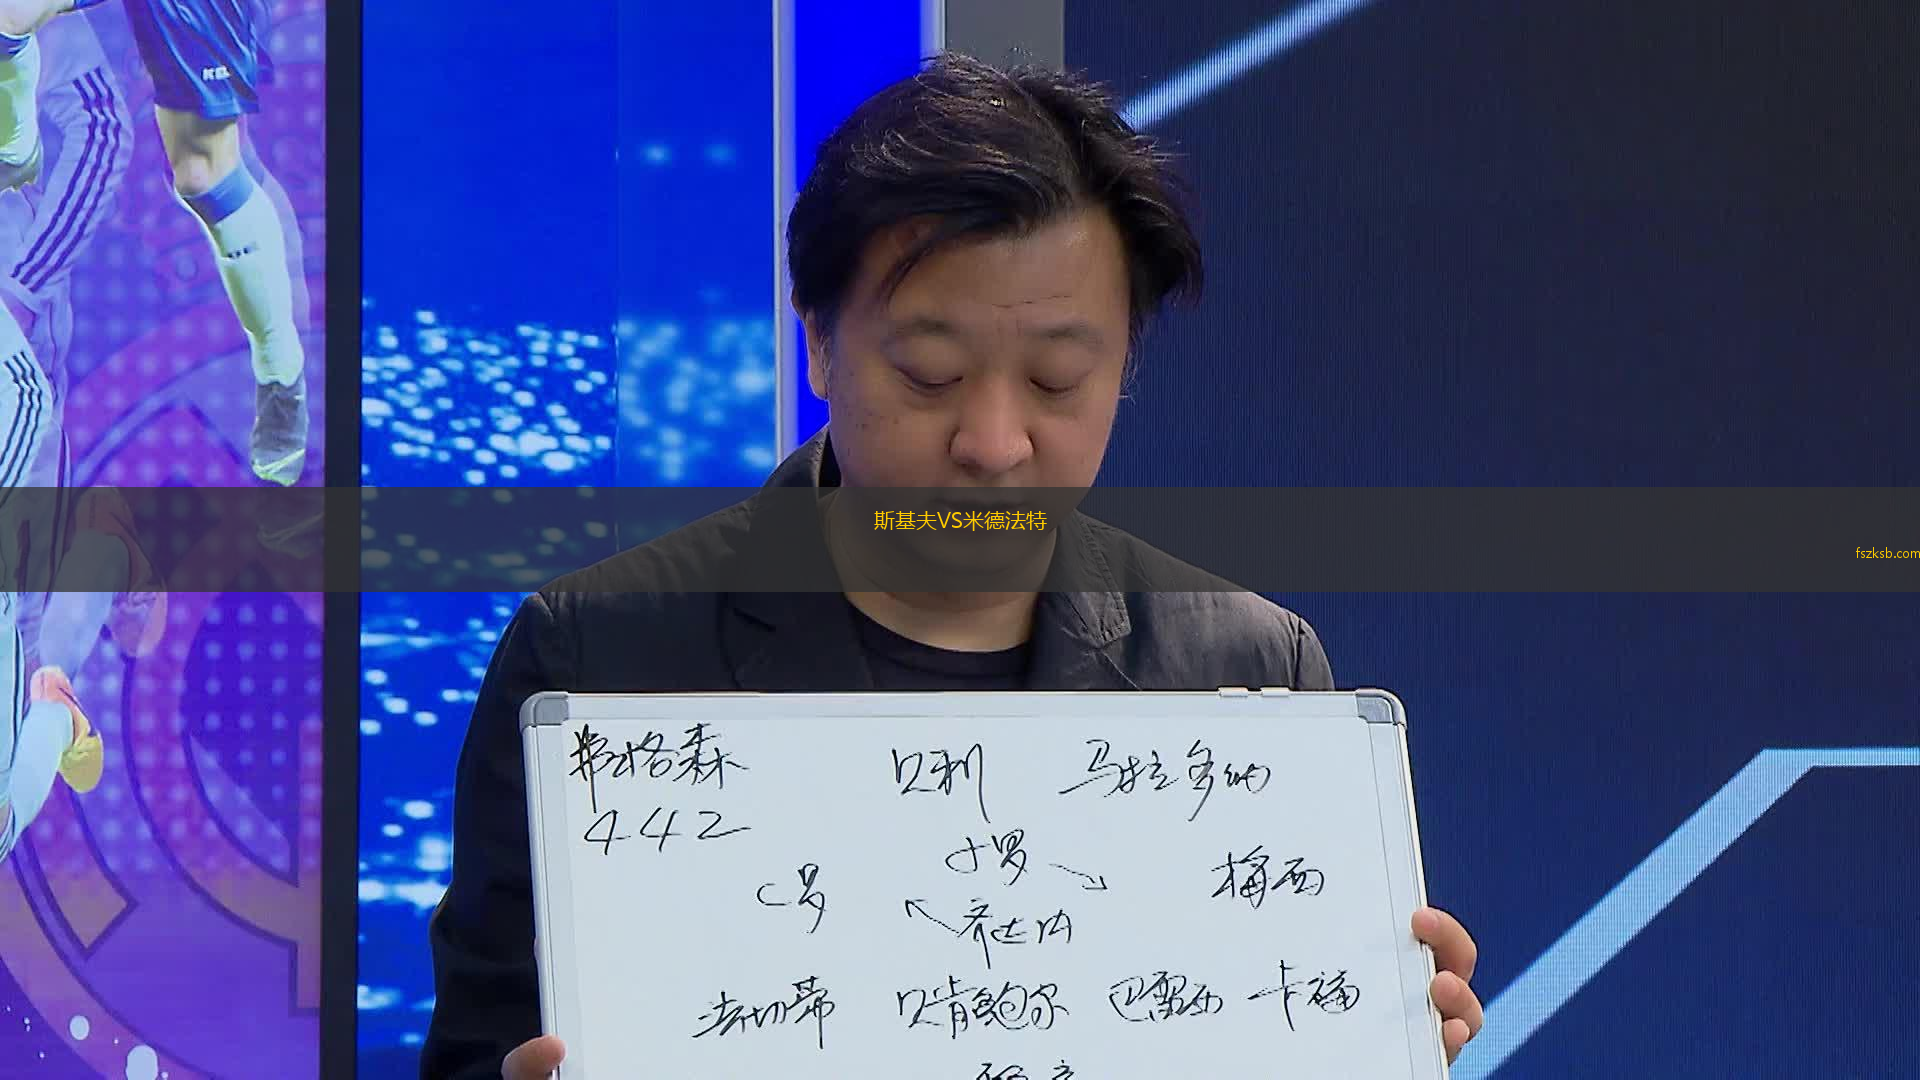 斯基夫VS米德法特
fszksb.com
弗格森 贝利 马拉多纳
442
小罗
C罗 梅西
齐达内
法切蒂 贝肯鲍尔 巴雷西 卡福